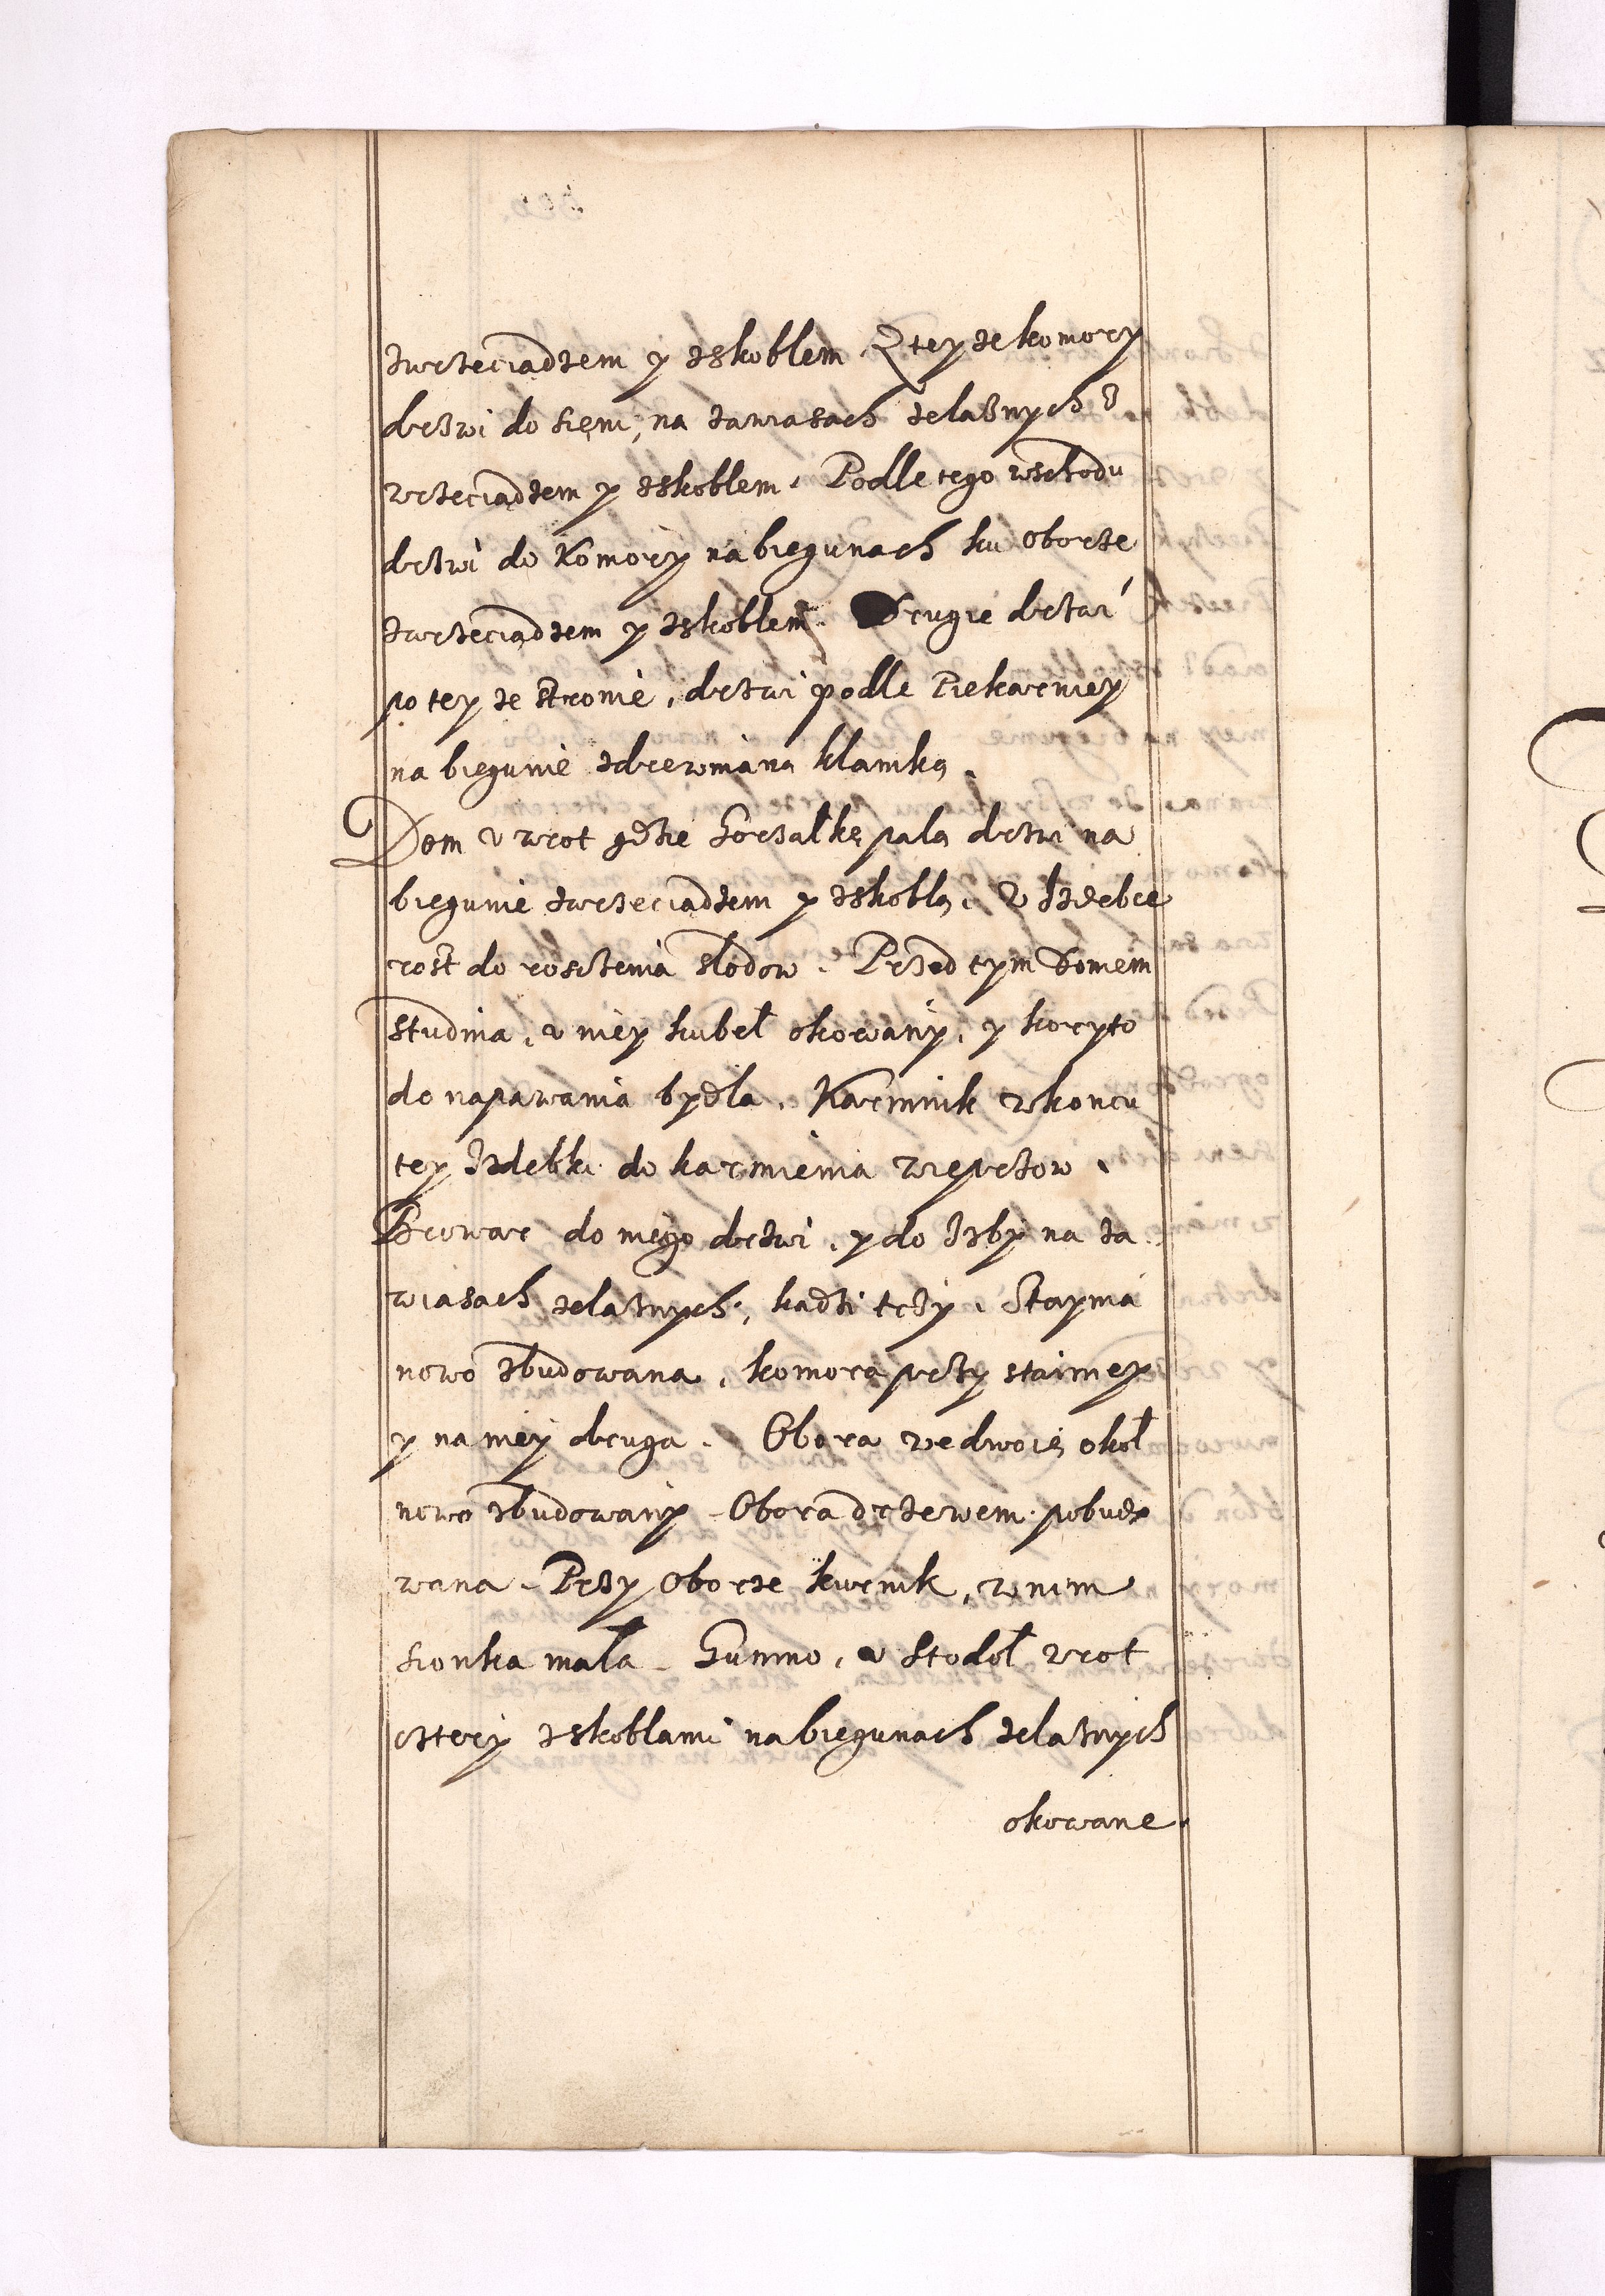 zwrzeciadzem y zskoblem. Z tey ze komory
drzwi do sieni, na zawiasach zelaznych z
wrzeciadzem y zskoblem. Podle tego wschodu
drzwi do Komory na biegunach ku oborze
zwrzeciadzem y zskoblem. Drugie drzwi
po tey ze stronie, drzwi podle Piekarniey
na biegunie zdrewnianą klamką.
Dom v wrot gdzie Gorzałkę palą drzwi na
biegunie zwrzeciadzem y zskoblą. W Izdebce
rost do rosczenia słodow. Przed tym Domem
studnia, v niey kubeł okowany, y koryto
do napawania bydła. Karmnik w koncu
tey Izdebki do karmienia wieprzow.
Browar do niego drzwi, y do Izby na za
wiasach zelaznych, kadzi trzy. Staynia
nowo zbudowana, komora przy stainiey
y na niey druga. Obora we dwoie okoł
nowo zbudowany. Obora drzewem pobudo
wana. Przy Oborze kurnik, w nim
sionka mała. Gumno, v stodoł wrot
cztery zskoblami na biegunach zelaznych
okowane.